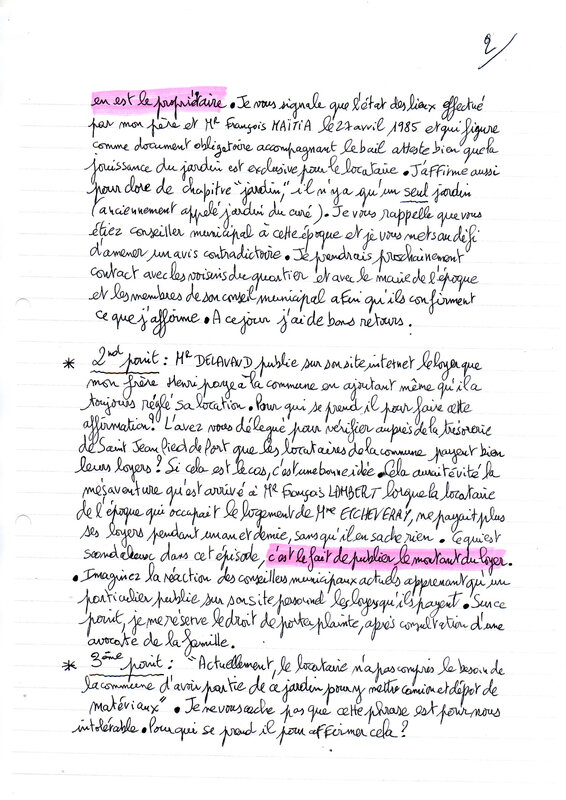 2/
en est le propriétaire. Je vous signale que l'état des lieux effectué
par mon père et Mr François MAITIA le 27 avril 1985 et qui figure
comme document obligatoire accompagnant le bail atteste bien que la
jouissance du jardin est exclusive pour le locataire. J'affirme aussi
pour clore de chapitre "jardin," il n'y a qu'un seul jardin
(anciennement appelé jardin du curé). Je vous rappelle que vous
étiez conseiller municipal à cette époque et je vous mets au défi
d'amener un avis contradictoire. Je prendrais prochainement
contact avec les voisins du quartier et avec le maire de l'époque
et les membres de son conseil municipal afin qu'ils confirment
ce que j'affirme. A ce jour j'ai de bons retours.
* 2nd point : Mr DELAVAUD publie sur son site internet le loyer que
mon frère Henri paye à la commune en ajoutant même qu'il a
toujours réglé sa location. Pour qui se prend il pour faire cette
affirmation? L'avez vous délégué pour vérifier auprès de la trésorerie
de Saint Jean Pied de Port que les locataires de la commune payent bien
leurs loyers? Si cela est le cas, c'est une bonne idée. Cela aurait évité la
mésaventure qu'est arrivé à Mr François LAMBERT lorsque la locataire
de l'époque qui occupait le logement de Mme ETCHEVERRY, ne payait plus
ses loyers pendant un an et demie, sans qu'il en sache rien. Ce qui est
scandaleux dans cet épisode, c'est le fait de publier le montant du loyer.
. Imaginez la réaction des conseillers municipaux actuels apprenant qu'un
particulier publie sur son site personnel les loyers qu'ils payent. Sur ce
point, je me réserve le droit de porter plainte, après consultation d'une
avocate de la famille.
* 3ème point : "Actuellement, le locataire n'a pas compris le besoin de
la commune d'avoir partie de ce jardin pour y mettre camion et dépôt de
matériaux". Je ne vous cache pas que cette phrase est pour nous
intolérable. Pour qui se prend il pour affirmer cela?